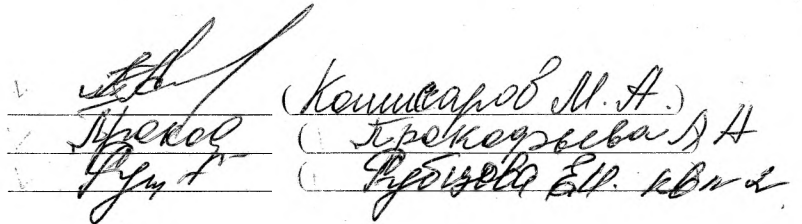 (Комиссаров М. А.)
Проков (Прокофьева Л А
Руб (Рубцова Е.И. кв № 2